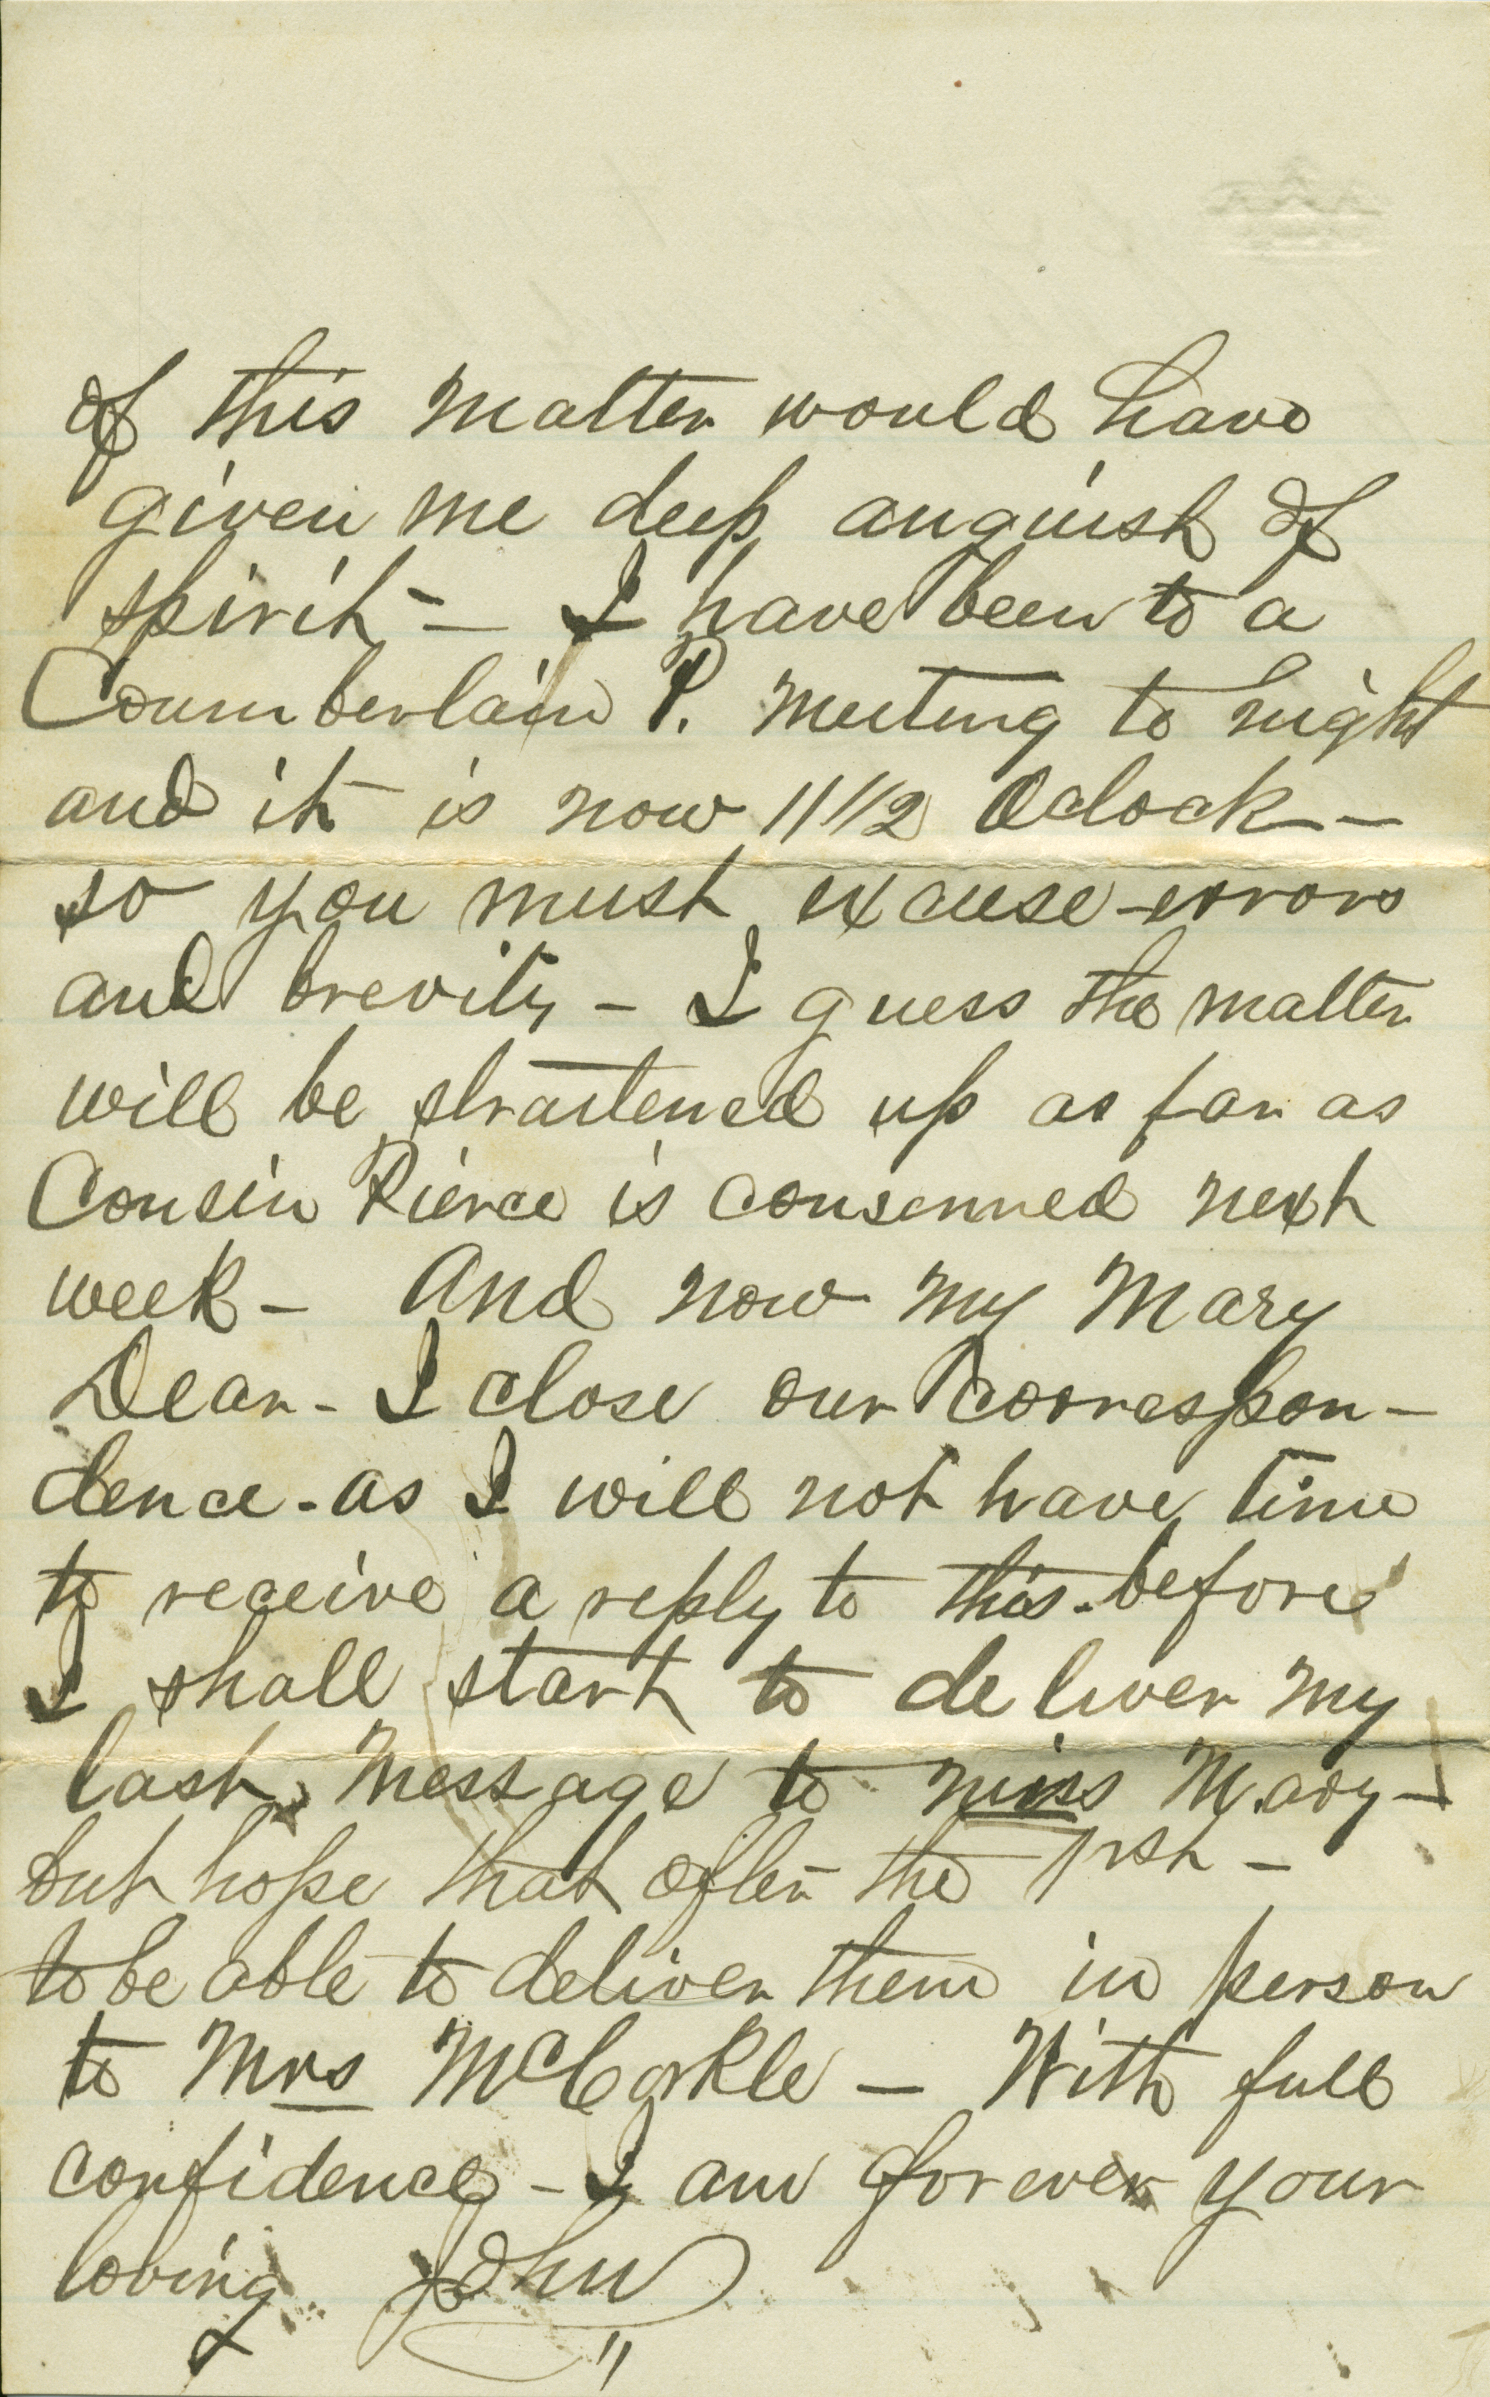 of this matter would have
given me deep anguish of
spirit — I have been to a
Coumberlain P. meeting to night
and it is now 11 1/2 Oclock —
so you must excuse errors
and brevity – I guess the matter
will be straitened up as far as
Cousin Pierce is conserned next
week – And now my Mary
Dear – I close our correspon–
dence – as I will not have time
to receive a reply to this – before
I shall start to deliver my
last message to miss Mary –
but hope that after the 1rst –
to be able to deliver them in person
to Mrs McCorkle – With full
confidence – I am forever your
loving John